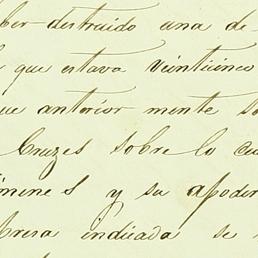 ber destruido una de
que estava veinticinco
que anterior mente so
Cruzes sobre lo cu
imenes y su apoder
Presa indicada se